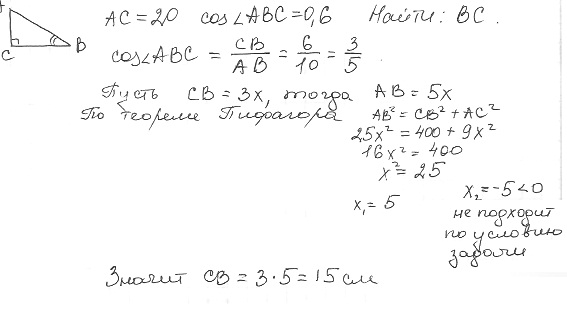 A
C
B
AC = 20 cos∠ABC = 0,6 Найти: BC.
cos∠ABC = CB/AB = 6/10 = 3/5
Пусть CB = 3x, тогда AB = 5x
По теореме Пифагора AB² = CB² + AC²
25x² = 400 + 9x²
16x² = 400
x² = 25
x₁ = 5
x₂ = -5 < 0
не подходит
по условию
задачи
Значит CB = 3·5 = 15 см